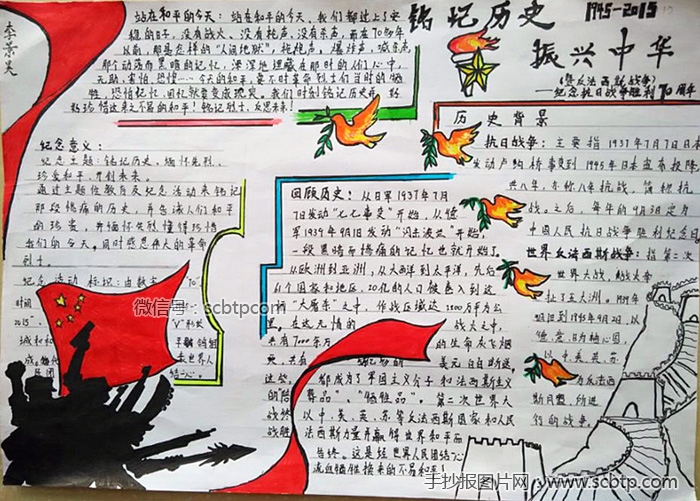 李景昊
站在和平的今天：站在和平的今天，我们都过上了安
稳的日子，没有战火、没有枪声、没有杀声，而在70多年
以前，那是怎样的"人间地狱"，枪炮声，爆炸声，喊杀声
那个动荡而黑暗的记忆，深深地埋藏在那时的人们心中，
无助、害怕、恐惶… 今天的和平，莫不时革命烈士们当时的牺
牲，恐怕记忆、回忆就要变成现实。我们时刻铭记历史
珍惜这来之不易的和平！铭记烈士，反思未来！
铭记历史
1945-2015
振兴中华
(暨反法西斯战争)
——纪念抗日战争胜利70周年
纪念意义：
纪念主题：铭记历史、缅怀先烈、
珍爱和平、开创未来。
通过主题性教育及纪念活动来铭记
那段惨痛的历史，并告诫人们和平
的珍贵，并缅怀先烈懂得珍惜
我们的今天。同时感恩伟大的革命
烈士。
纪念活动 标识：由数字 "70"
时间
2015"、
"V"形
城和和
成。
民团
回顾历史：从日军1937年7月
7日发动"七七事变"开始，从德
军1939年9月1日发动"闪击波兰"开始，
一段黑暗而惨痛的记忆也就开始了
从欧洲到亚洲，从大西洋到太平洋，先后
个国家和地区，20亿的人口被卷入到这
"大屠杀"之中，作战区域达
里。在这无情的 战火之中，
共有7000多万 的生命灰飞烟
美元白白断送，
都成为了军国主义分子和法西斯主义
的"陪葬品"、"牺牲品"。第二次世界大
战终 以中、美、英、苏等反法西斯国家和人民
战胜 法西斯力量并赢得世界和平而
告终。这是经世界人民团结一心
流血牺牲换来的不易和平！
历史背景
抗日战争：主要指1937年7月7日日本
发动卢沟桥事变到1945年日本宣布投降
共八年，亦称八年抗战，简称抗
战。之后，每年的9月3日定为
中国人民抗日战争胜利纪念日
世界反法西斯战争：指第二次
世界大战，
于五大洲。1939年
明日到1945年9月2日，以
德、意、日为轴心国，
以中、美、英、苏
为反法西
斯同盟，所进
行的战争。
微信号：scbtpcom
手抄报图片网 www.scbtp.com